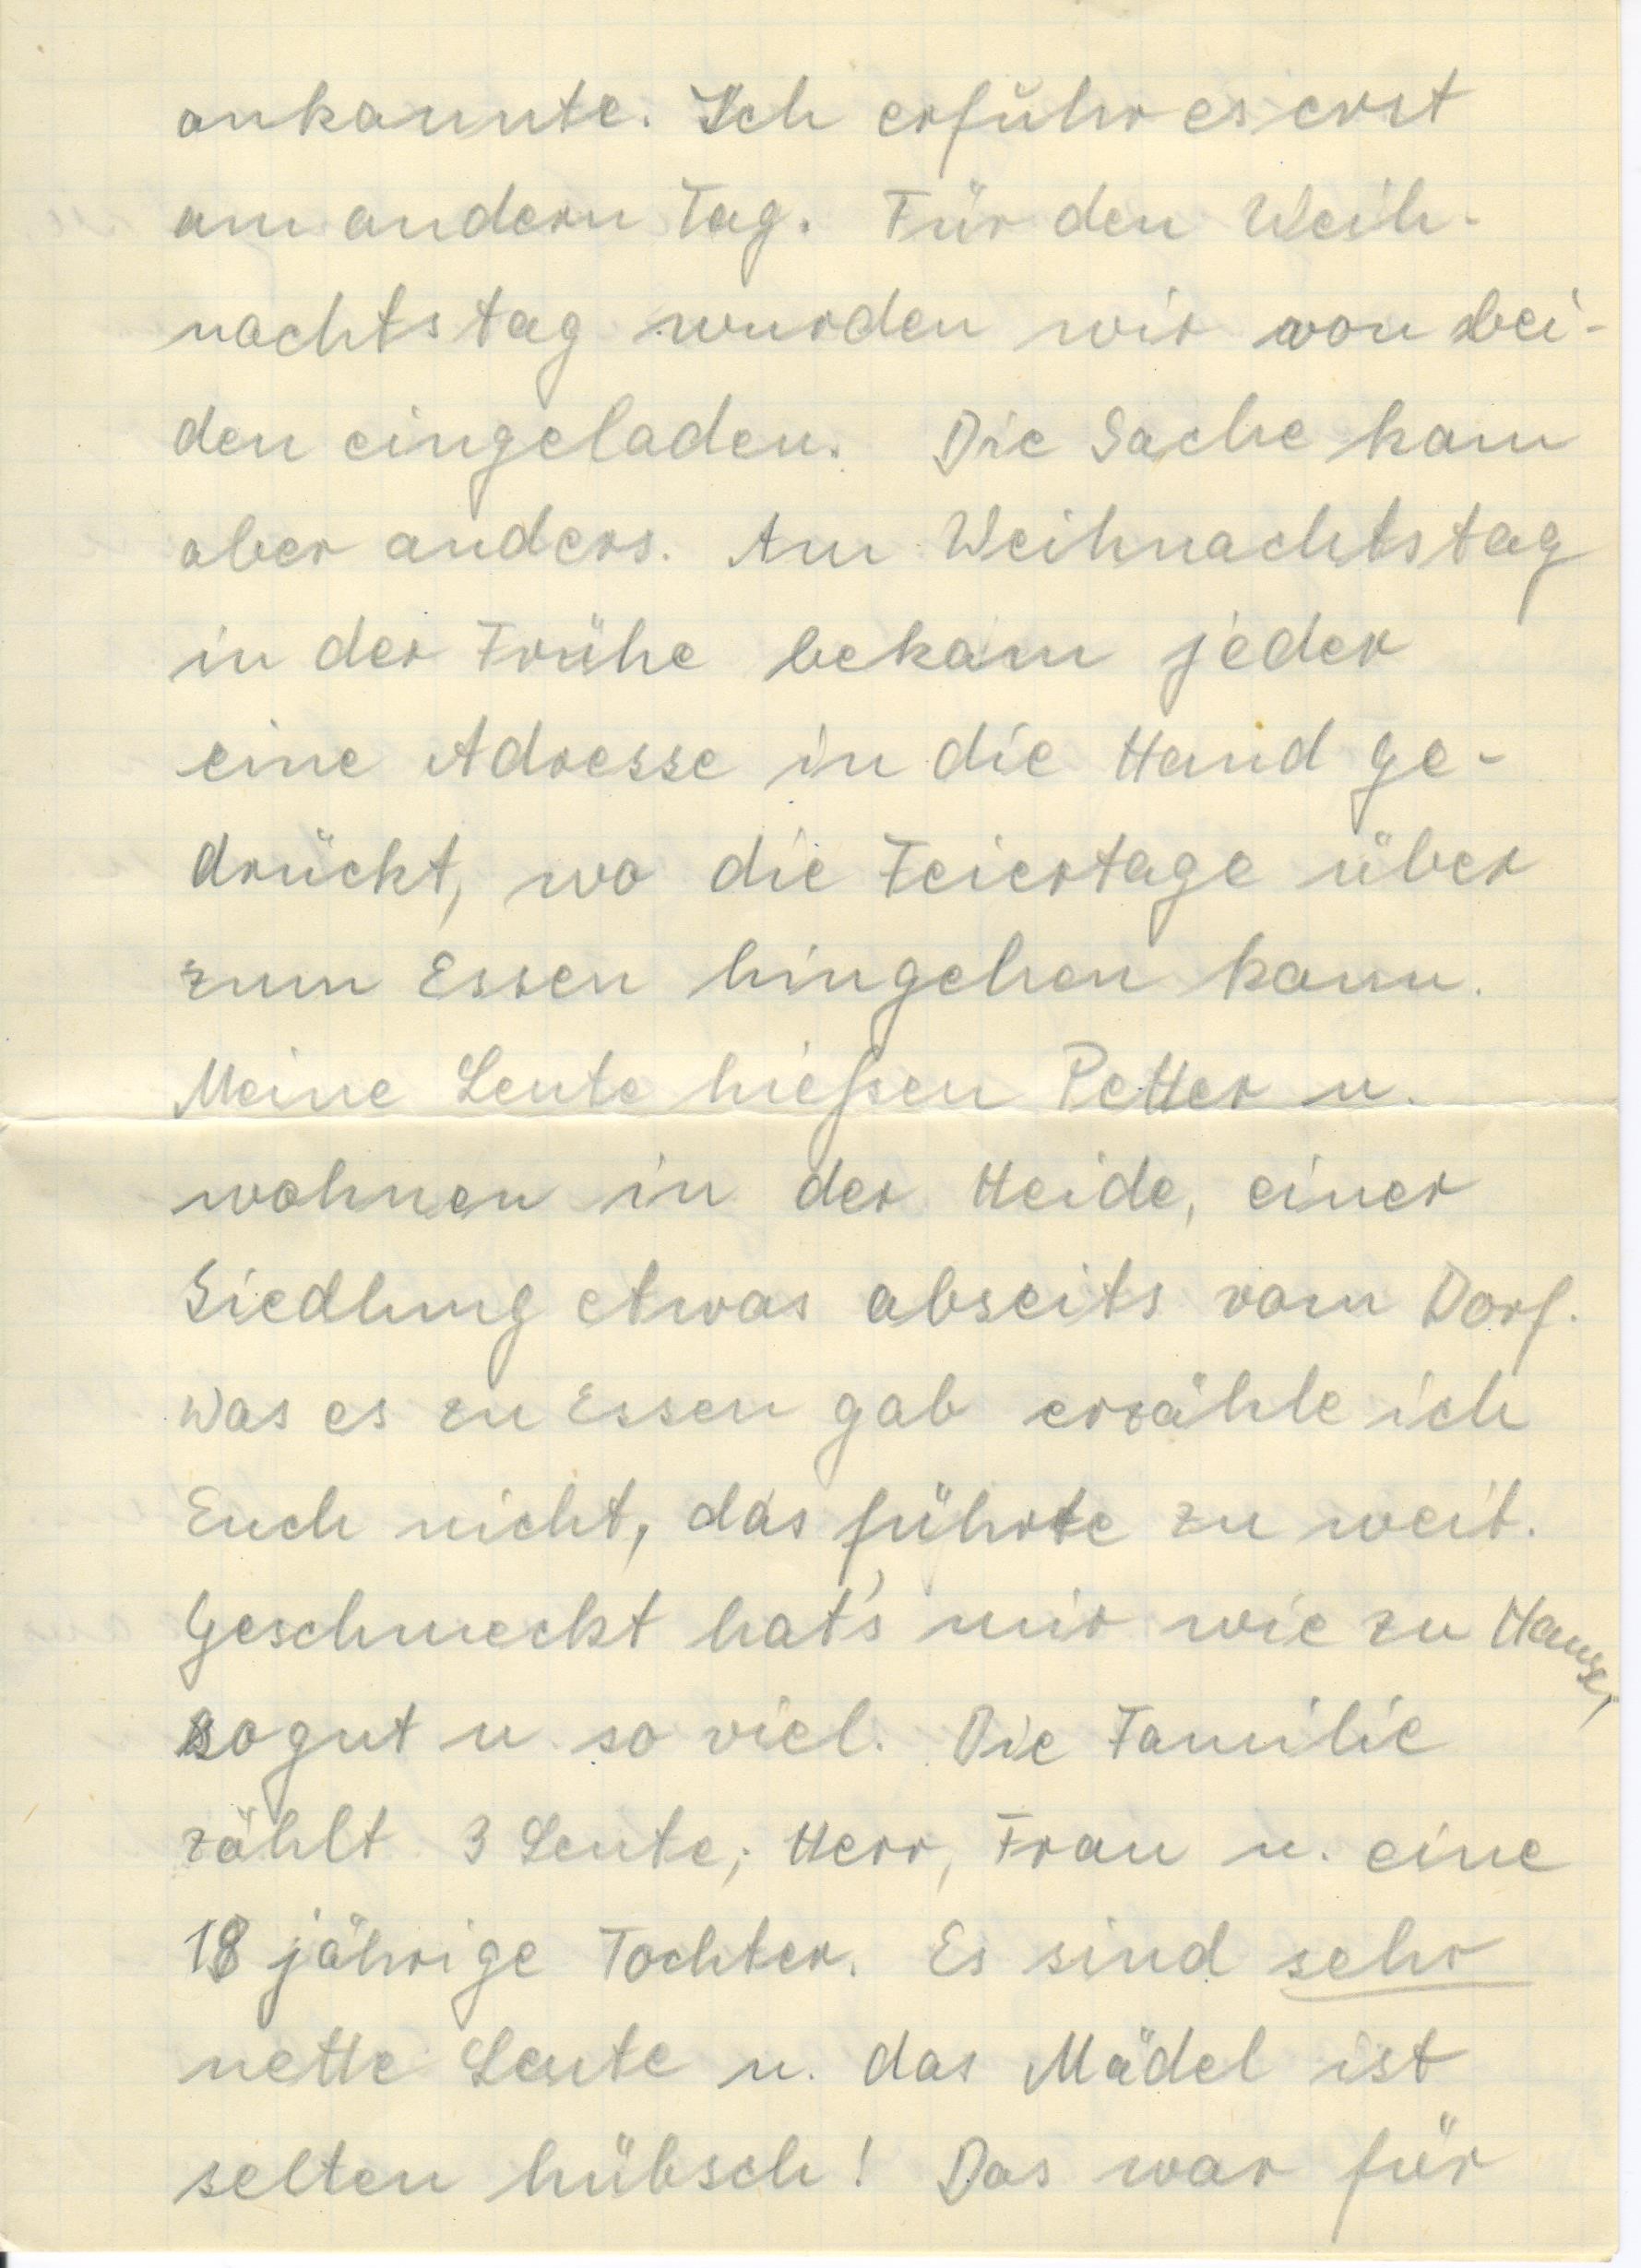 ankannte. Ich erfuhr es erst
am andern Tag. Für den Weih-
nachtstag wurden wir von bei-
den eingeladen. Die Sache kam
aber anders. Am Weihnachtstag
in der Frühe bekam jeder
eine Adresse in die Hand ge-
drückt, wo die Feiertage über
zum Essen hingehen kann.
Meine Leute hießen Petter u.
wohnen in der Heide, einer
Siedlung etwas abseits vom Dorf.
Was es zu Essen gab erzähle ich
Euch nicht, das führte zu weit.
Geschmeckt hat's mir wie zu Hause,
so gut u so viel. Die Familie
zählt 3 Leute; Herr, Frau u. eine
18 jährige Tochter. Es sind sehr
nette Leute u. das Mädel ist
selten hübsch! Das war für